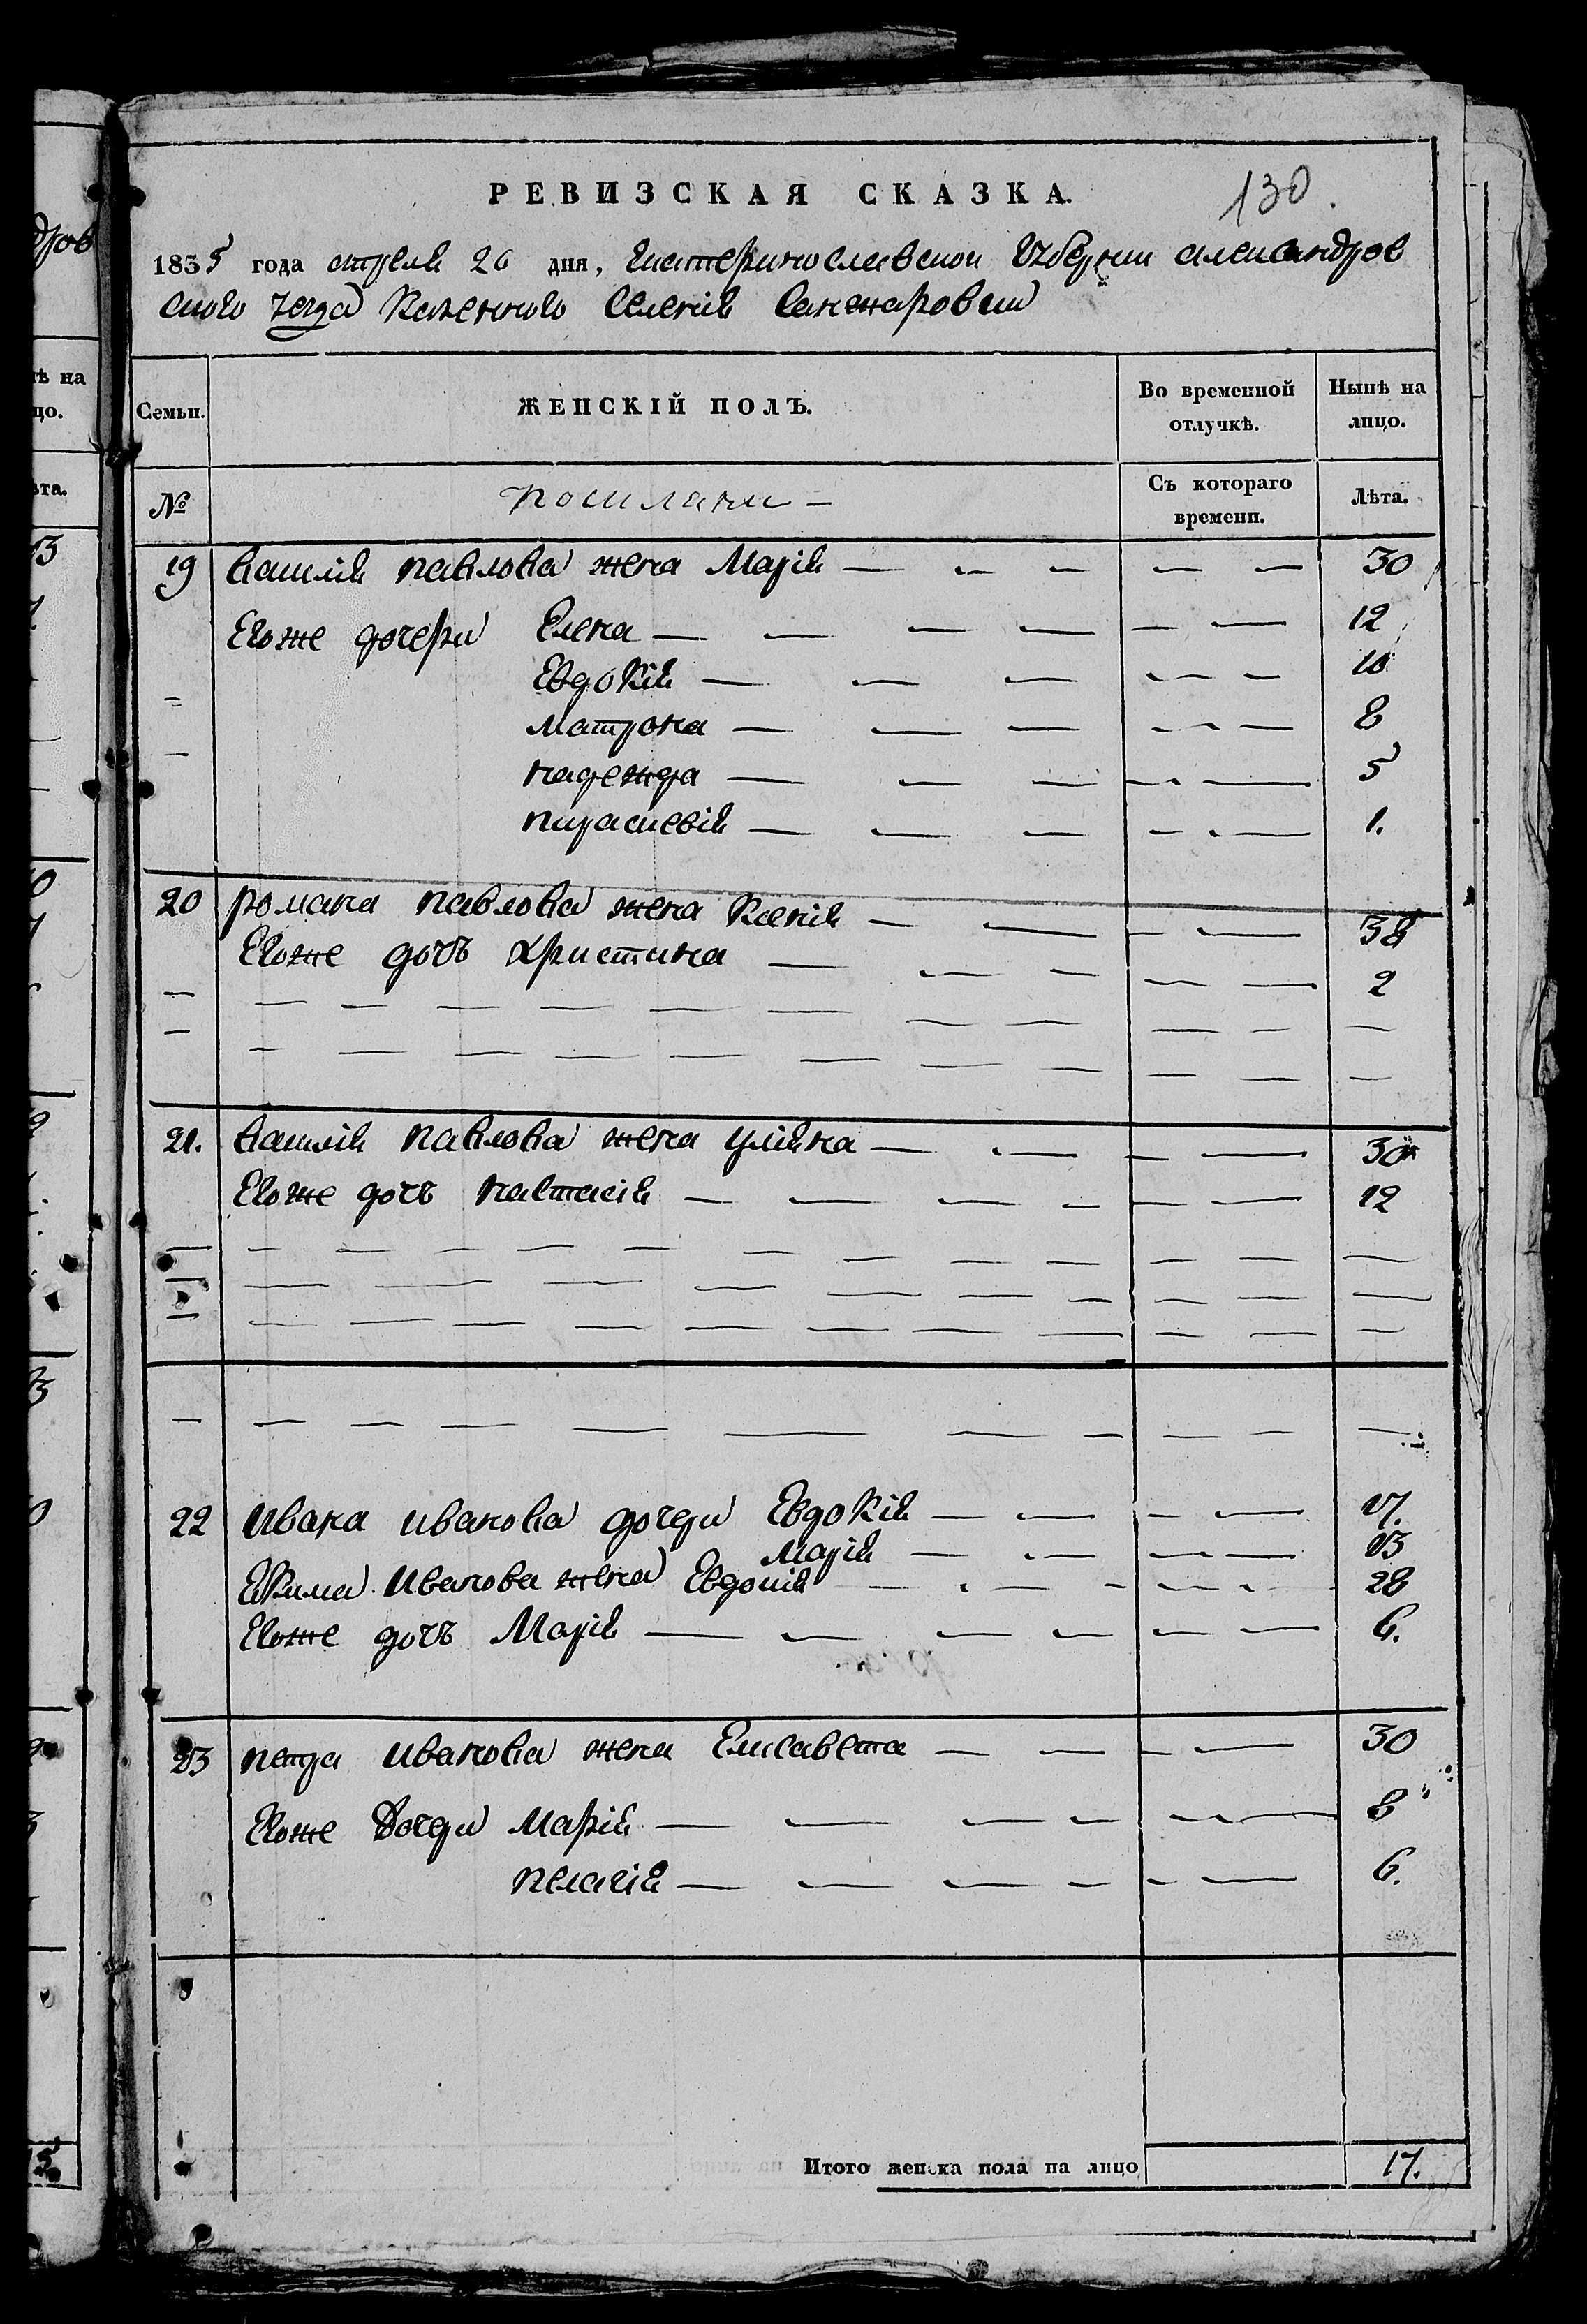 РЕВИЗСКАЯ СКАЗКА.
130.
1835 года апреля 20 дня, Екатеринославской Губернии александров
ского уезда Казенного Селенія Санжаровки
Семьи.
ЖЕНСКІЙ ПОЛЪ.
Во временной отлучкѣ.
Нынѣ на лицо.
№
Поселяни —
Съ котораго времени.
Лѣта.
19 василія павлова жена Марія — 30
Егоже дочери Елена — 12
Евдокія — 10
матрона — 8
надежда — 5
параскевія — 1.
20 романа павлова жена Ксенія — 38
Егоже дочь христина — 2
21. василія павлова жена уліяна — 30
Егоже дочь настасія — 12
22 ивана иванова дочери Евдокія — 17.
Марія — 13
Екима иванова жена Евдокія — 28
Егоже дочь Марія — 6.
23 петра иванова жена Елисавета — 30
Егоже Дочери марія — 8
пелагія — 6.
Итого женска пола на лицо 17.
дров
тѣ на
цо.
ѣта.